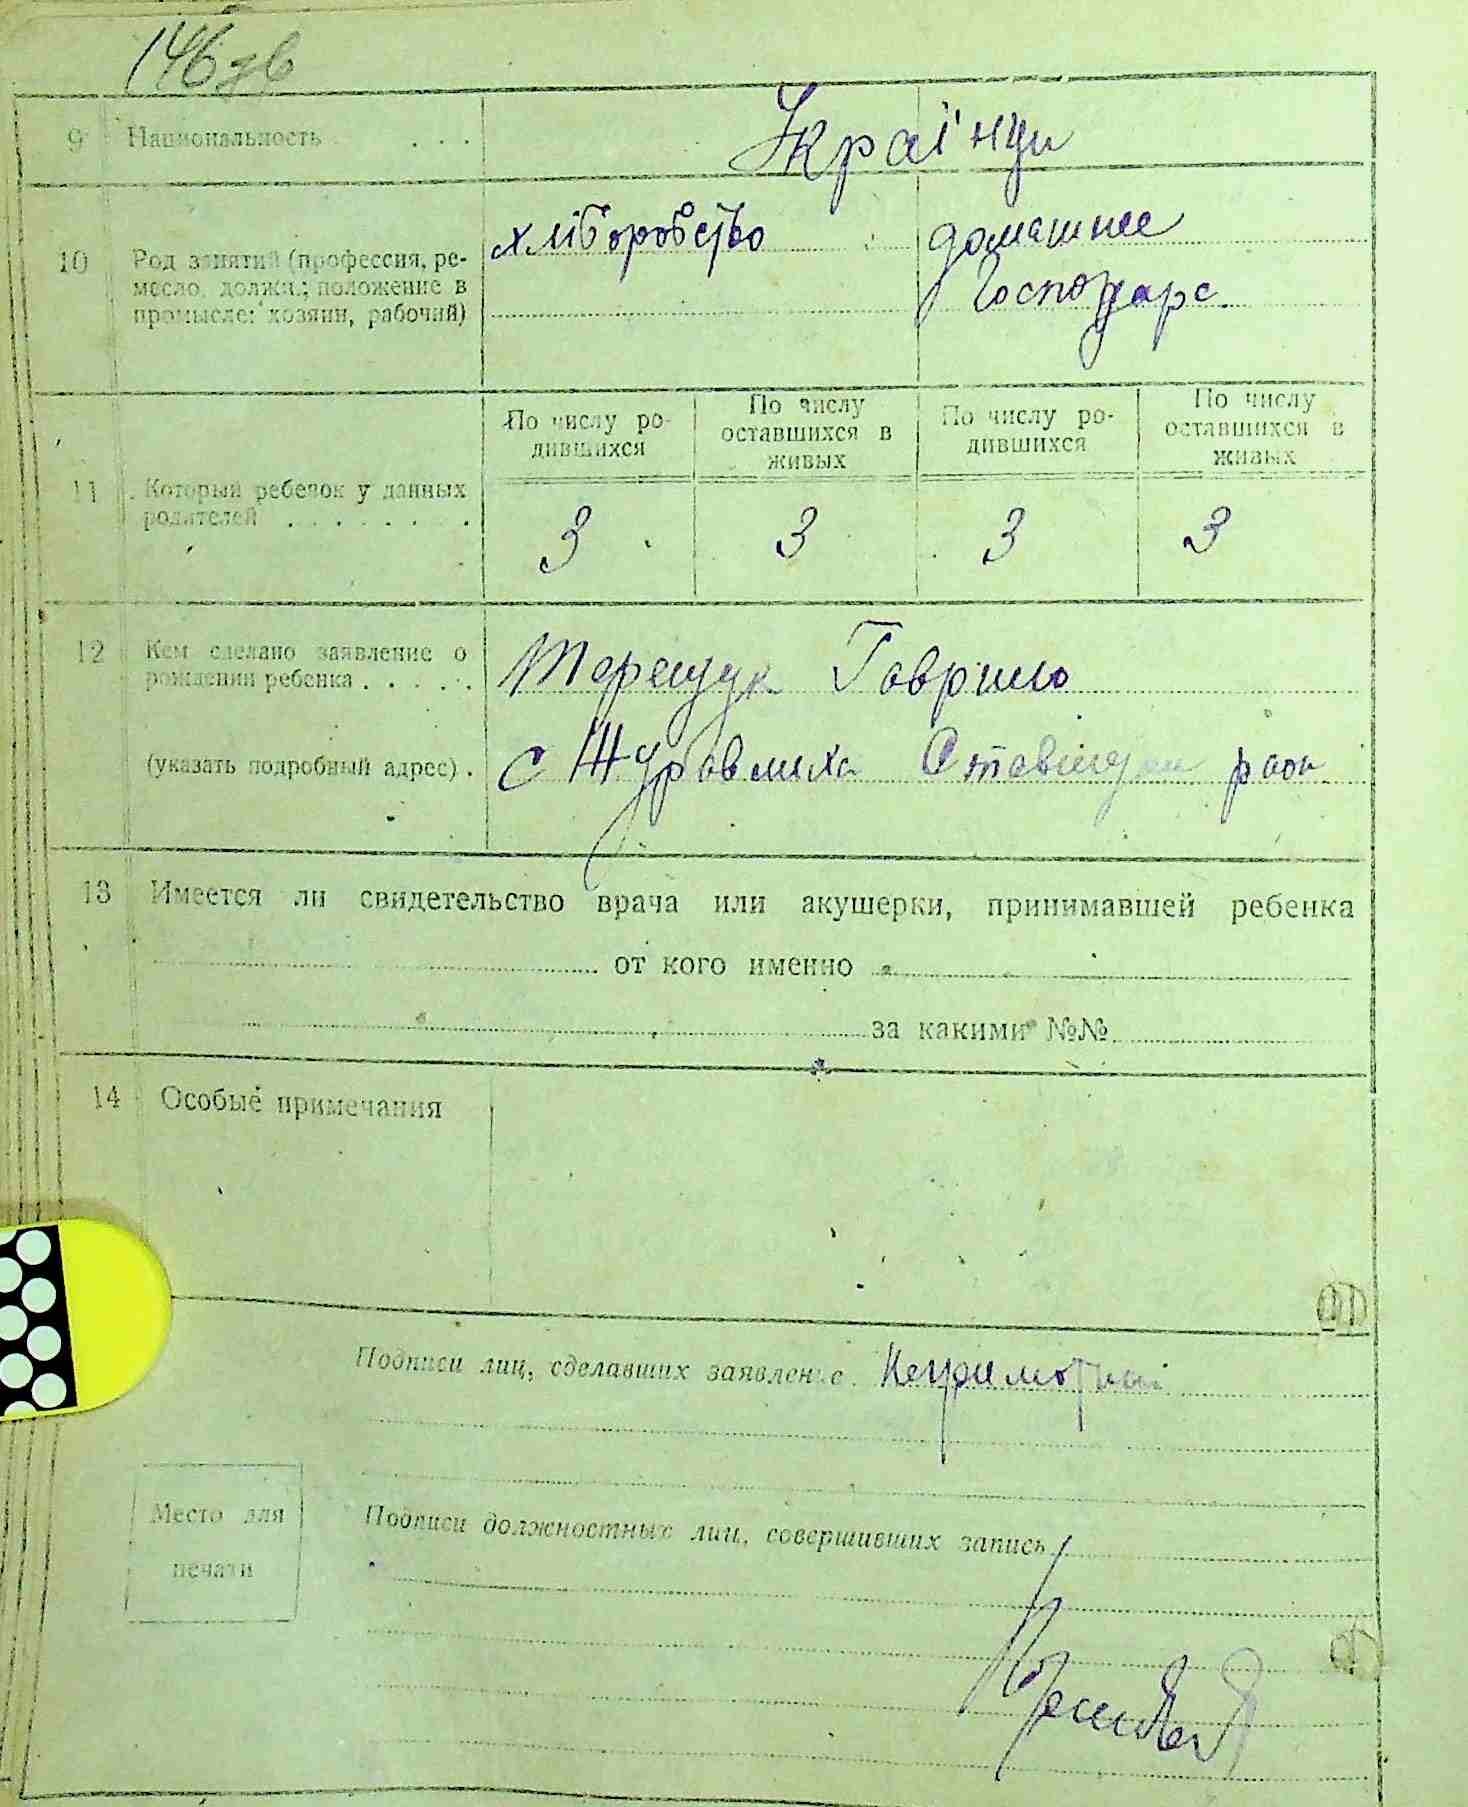 146 зв
9 Национальность . . . Українци
10 Род занятий (профессия, ре-
месло, должн.; положение в
промысле: хозяин, рабочий)
хліборобство
домашнее
господарс.
По числу ро-
дившихся
По числу
оставшихся в
живых
По числу ро-
дившихся
По числу
оставшихся в
живых
11 Который ребенок у данных
родителей . . . . . . . .
3 3 3 3
12 Кем сделано заявление о
рождении ребенка . . . . .
Терещук Гаврило
(указать подробный адрес) .
с Журавлиха Ставищан раон
13 Имеется ли свидетельство врача или акушерки, принимавшей ребенка
от кого именно
за какими №№
14 Особые примечания
Подписи лиц, сделавших заявление Неграмотний
Подписи должностных лиц, совершивших запись
Место для
печати